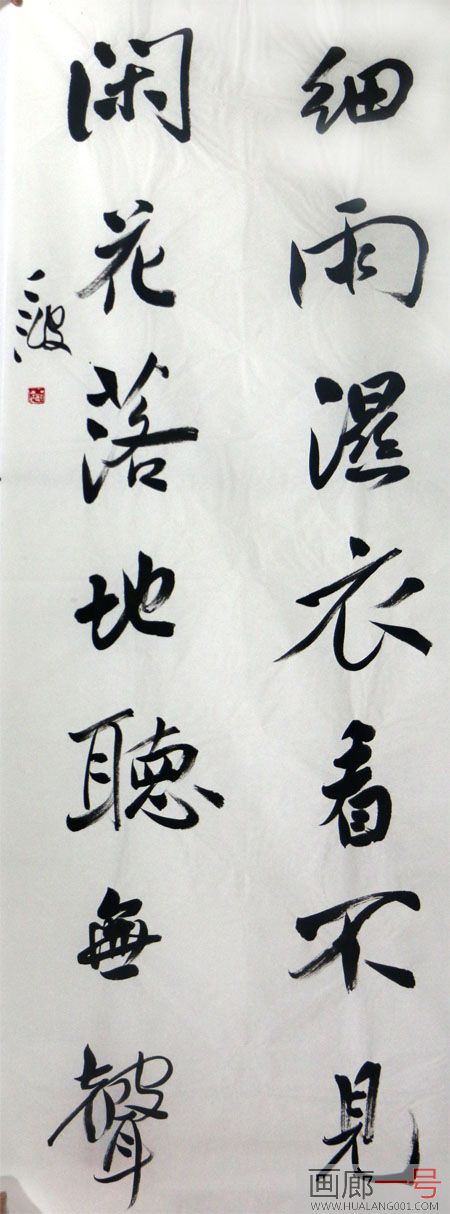 细雨濕衣看不見
闲花落地聽無聲
画廊一号
WWW.HUALANG001.COM